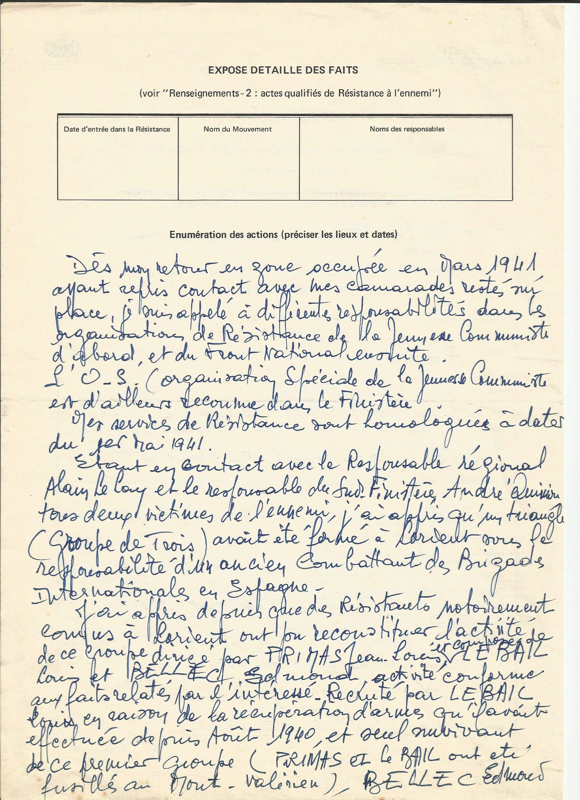 EXPOSE DETAILLE DES FAITS
(voir "Renseignements - 2 : actes qualifiés de Résistance à l'ennemi")
Date d'entrée dans la Résistance
Nom du Mouvement
Noms des responsables
Enumération des actions (préciser les lieux et dates)
Dès mon retour en zone occupée en Mars 1941
ayant repris contact avec mes camarades restés sur
place, je suis appelé à différentes responsabilités dans les
organisations de Résistance de la Jeunesse Communiste
d'abord, et du Front National ensuite.
L'O.S. (organisation Spéciale de la Jeunesse Communiste
est d'ailleurs reconnue dans le Finistère
Mes services de Résistance sont homologués à dater
du 1er Mai 1941.
Etant en contact avec le Responsable régional
Alain Le Lay et le responsable du Sud-Finistère, André
tous deux victimes de l'ennemi, j'ai appris qu'un triangle
(Groupe de Trois) avait été formé à Lorient sous la
responsabilité d'un ancien Combattant des Brigades
Internationales en Espagne.
J'ai appris depuis que des Résistants notoirement
connus à Lorient ont pu reconstituer l'activité
de ce groupe dirigé par PRIMAS Jean-Louis, et composé de LE BAIL
Louis et BELLEC Edmond, activité conforme
aux faits relatés par l'intéressé. Recruté par LE BAIL
Louis, en raison de la récupération d'armes qu'il avait
effectuée depuis Août 1940, et seul survivant
de ce premier groupe (PRIMAS et LE BAIL ont été
fusillés au Mont-Valérien), BELLEC Edmond